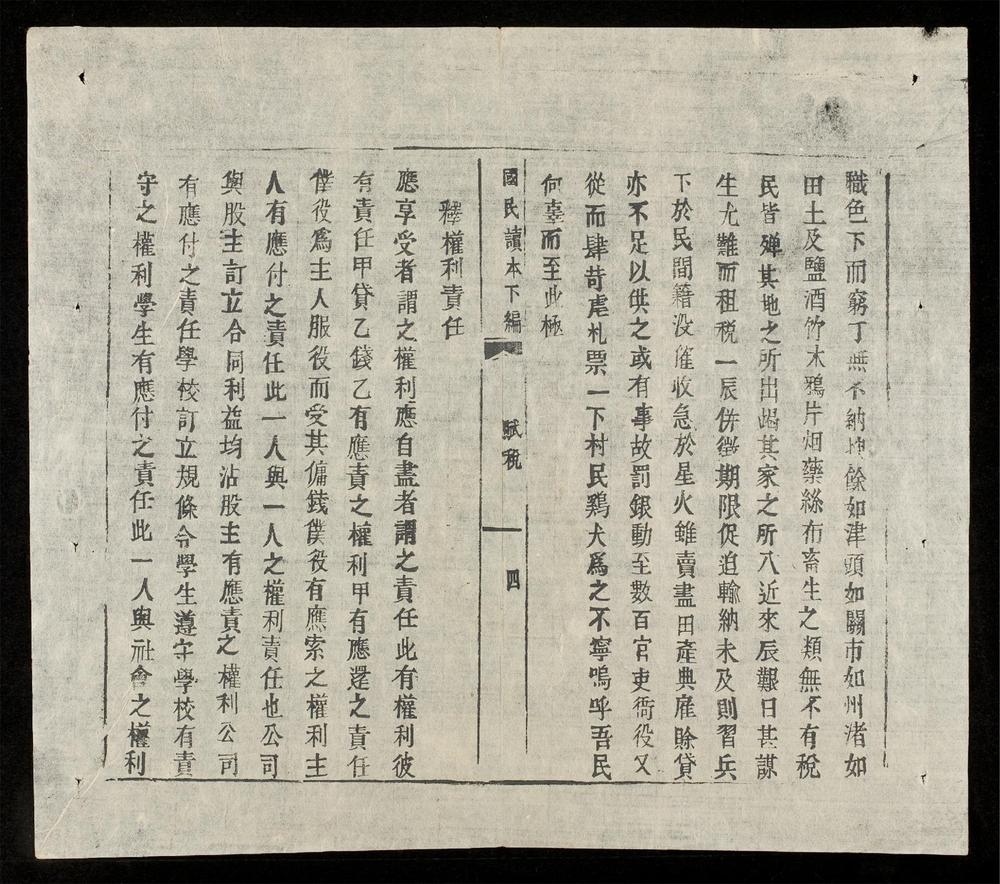 職色下而窮丁無不納坤餘如津頭如關市如州渚如
田土及鹽酒竹木鴉片烟藥絲布畜生之類無不有稅
民皆殫其地之所出竭其家之所入近來辰艱日甚謀
生尤難而租稅一辰併徵期限促迫輸納未及則習兵
下於民間籍没催收急於星火雖賣盡田產典雇賒貸
亦不足以供之或有事故罰銀動至數百官吏衙役又
從而肆苛虐札票一下村民鷄犬爲之不寧嗚呼吾民
何辜而至此極
國民讀本下編 賦稅 四
釋權利責任
應享受者謂之權利應自盡者謂之責任此有權利彼
有責任甲貸乙錢乙有應責之權利甲有應還之責任
僕役爲主人服役而受其傭錢僕役有應索之權利主
人有應付之責任此一人與一人之權利責任也公司
與股主訂立合同利益均沾股主有應責之權利公司
有應付之責任學校訂立規條令學生遵守學校有責
守之權利學生有應付之責任此一人與社會之權利